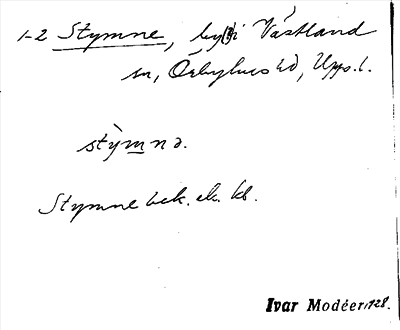 1-2 Stymne, by i Västland
sn, Örbyhus hd, Upps. l.
stỳmnə.
Stymne bek. ek. kl.
Ivar Modéer 1928.